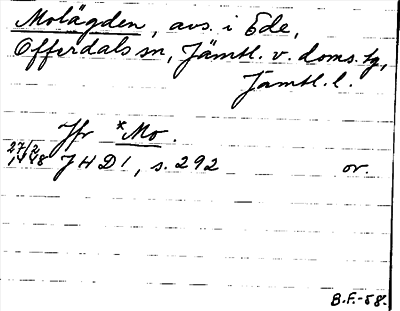 Molägden, avs. i Ede,
Offerdals sn, Jämtl. v. doms. tg,
Jämtl. l.
Jfr *Mo.
27/2 1448 JHD 1, s. 292 or.
B.F.-58.